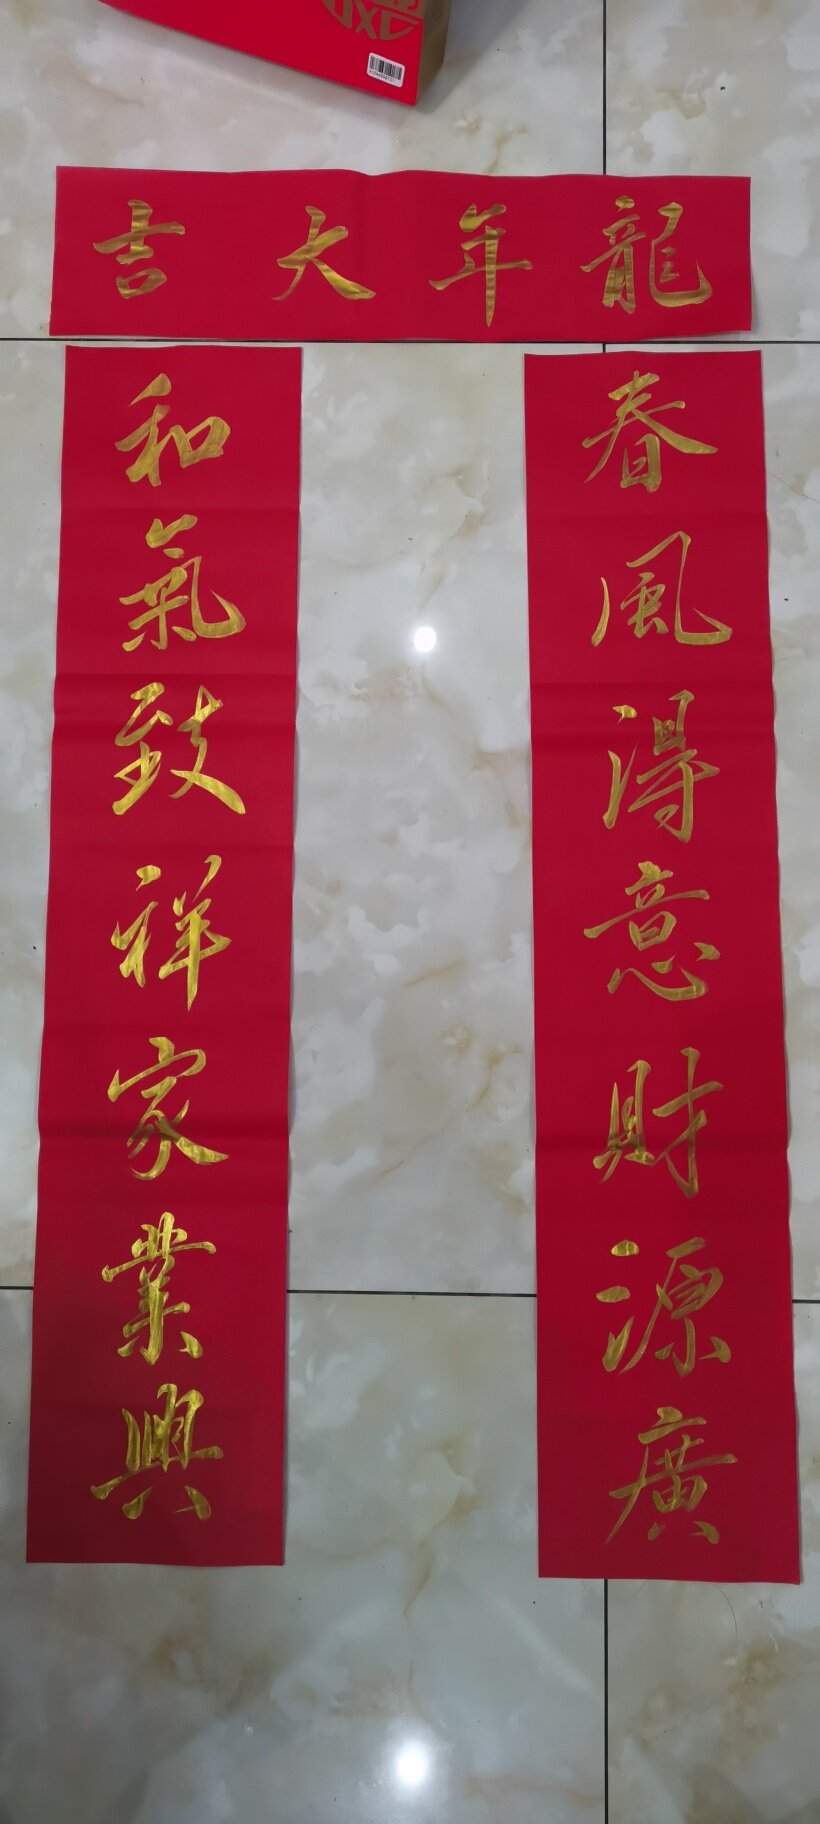 龍年大吉
春風得意財源廣
和氣致祥家業興